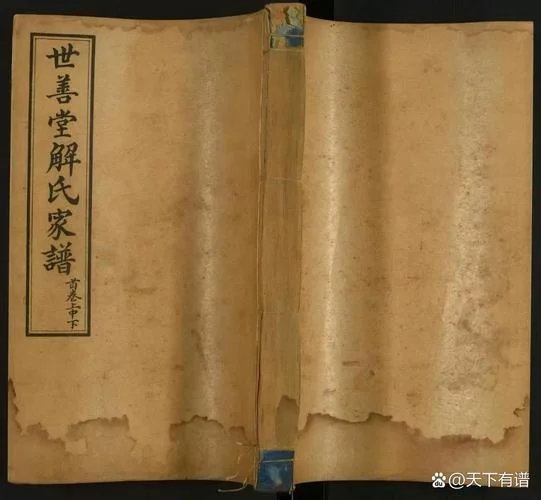 世善堂解氏家譜
首卷上中下
天下有谱